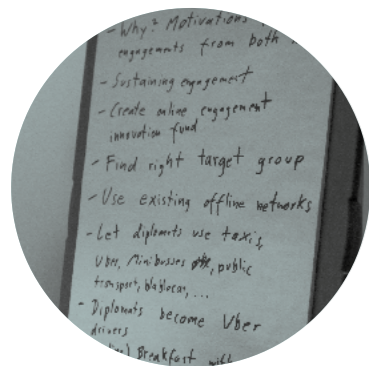 - Why? Motivations
engagements from both
- Sustaining engagement
- Create online engagement
innovation fund
- Find right target group
- Use existing offline networks
- Let diplomats use taxis,
Uber, Minibusses, public
transport, blablacar, ...
- Diplomats become Uber
drivers
Breakfast with